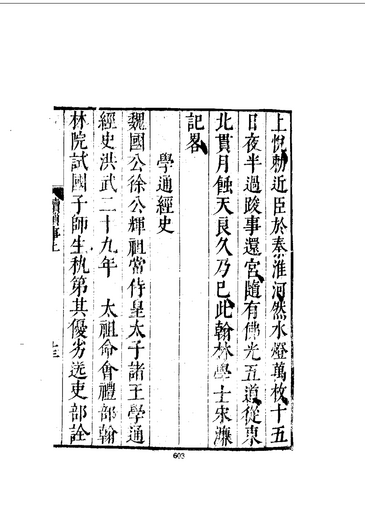 上悅勅近臣於秦淮河然水燈萬枚十五
日夜半過竣事還宮隨有佛光五道從東
北貫月蝕天良久乃已此翰林學士宋濂
記畧
學通經史
魏國公徐公輝祖嘗侍皇太子諸王學通
經史洪武二十九年 太祖命會禮部翰
林院試國子師生執第其優劣送吏部詮
十三
603